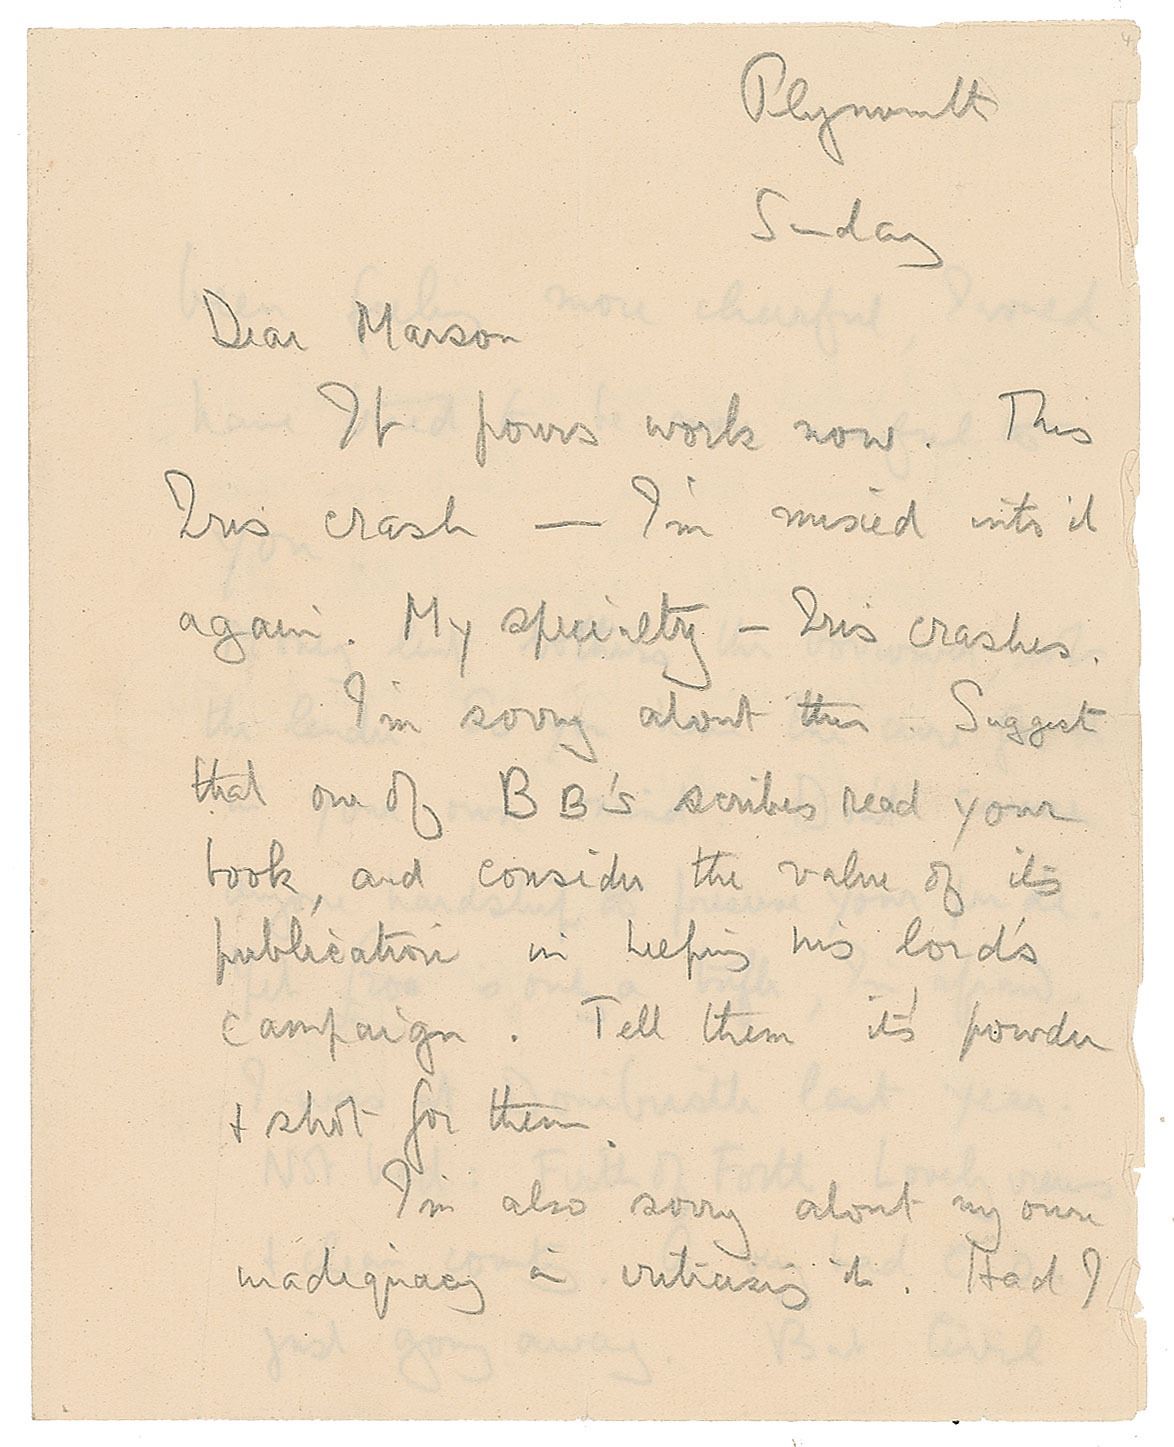 Plymouth
Sunday
Dear Marson
It pours work now. This
Iris crash — I'm mixed into it
again. My specialty – Iris crashes.
I'm sorry about this. Suggest
that one of BB's scribes read your
book, and consider the value of its
publication in helping his lord's
campaign. Tell them it's powder
& shot for them.
I'm also sorry about my own
inadequacy in criticising it. Had I